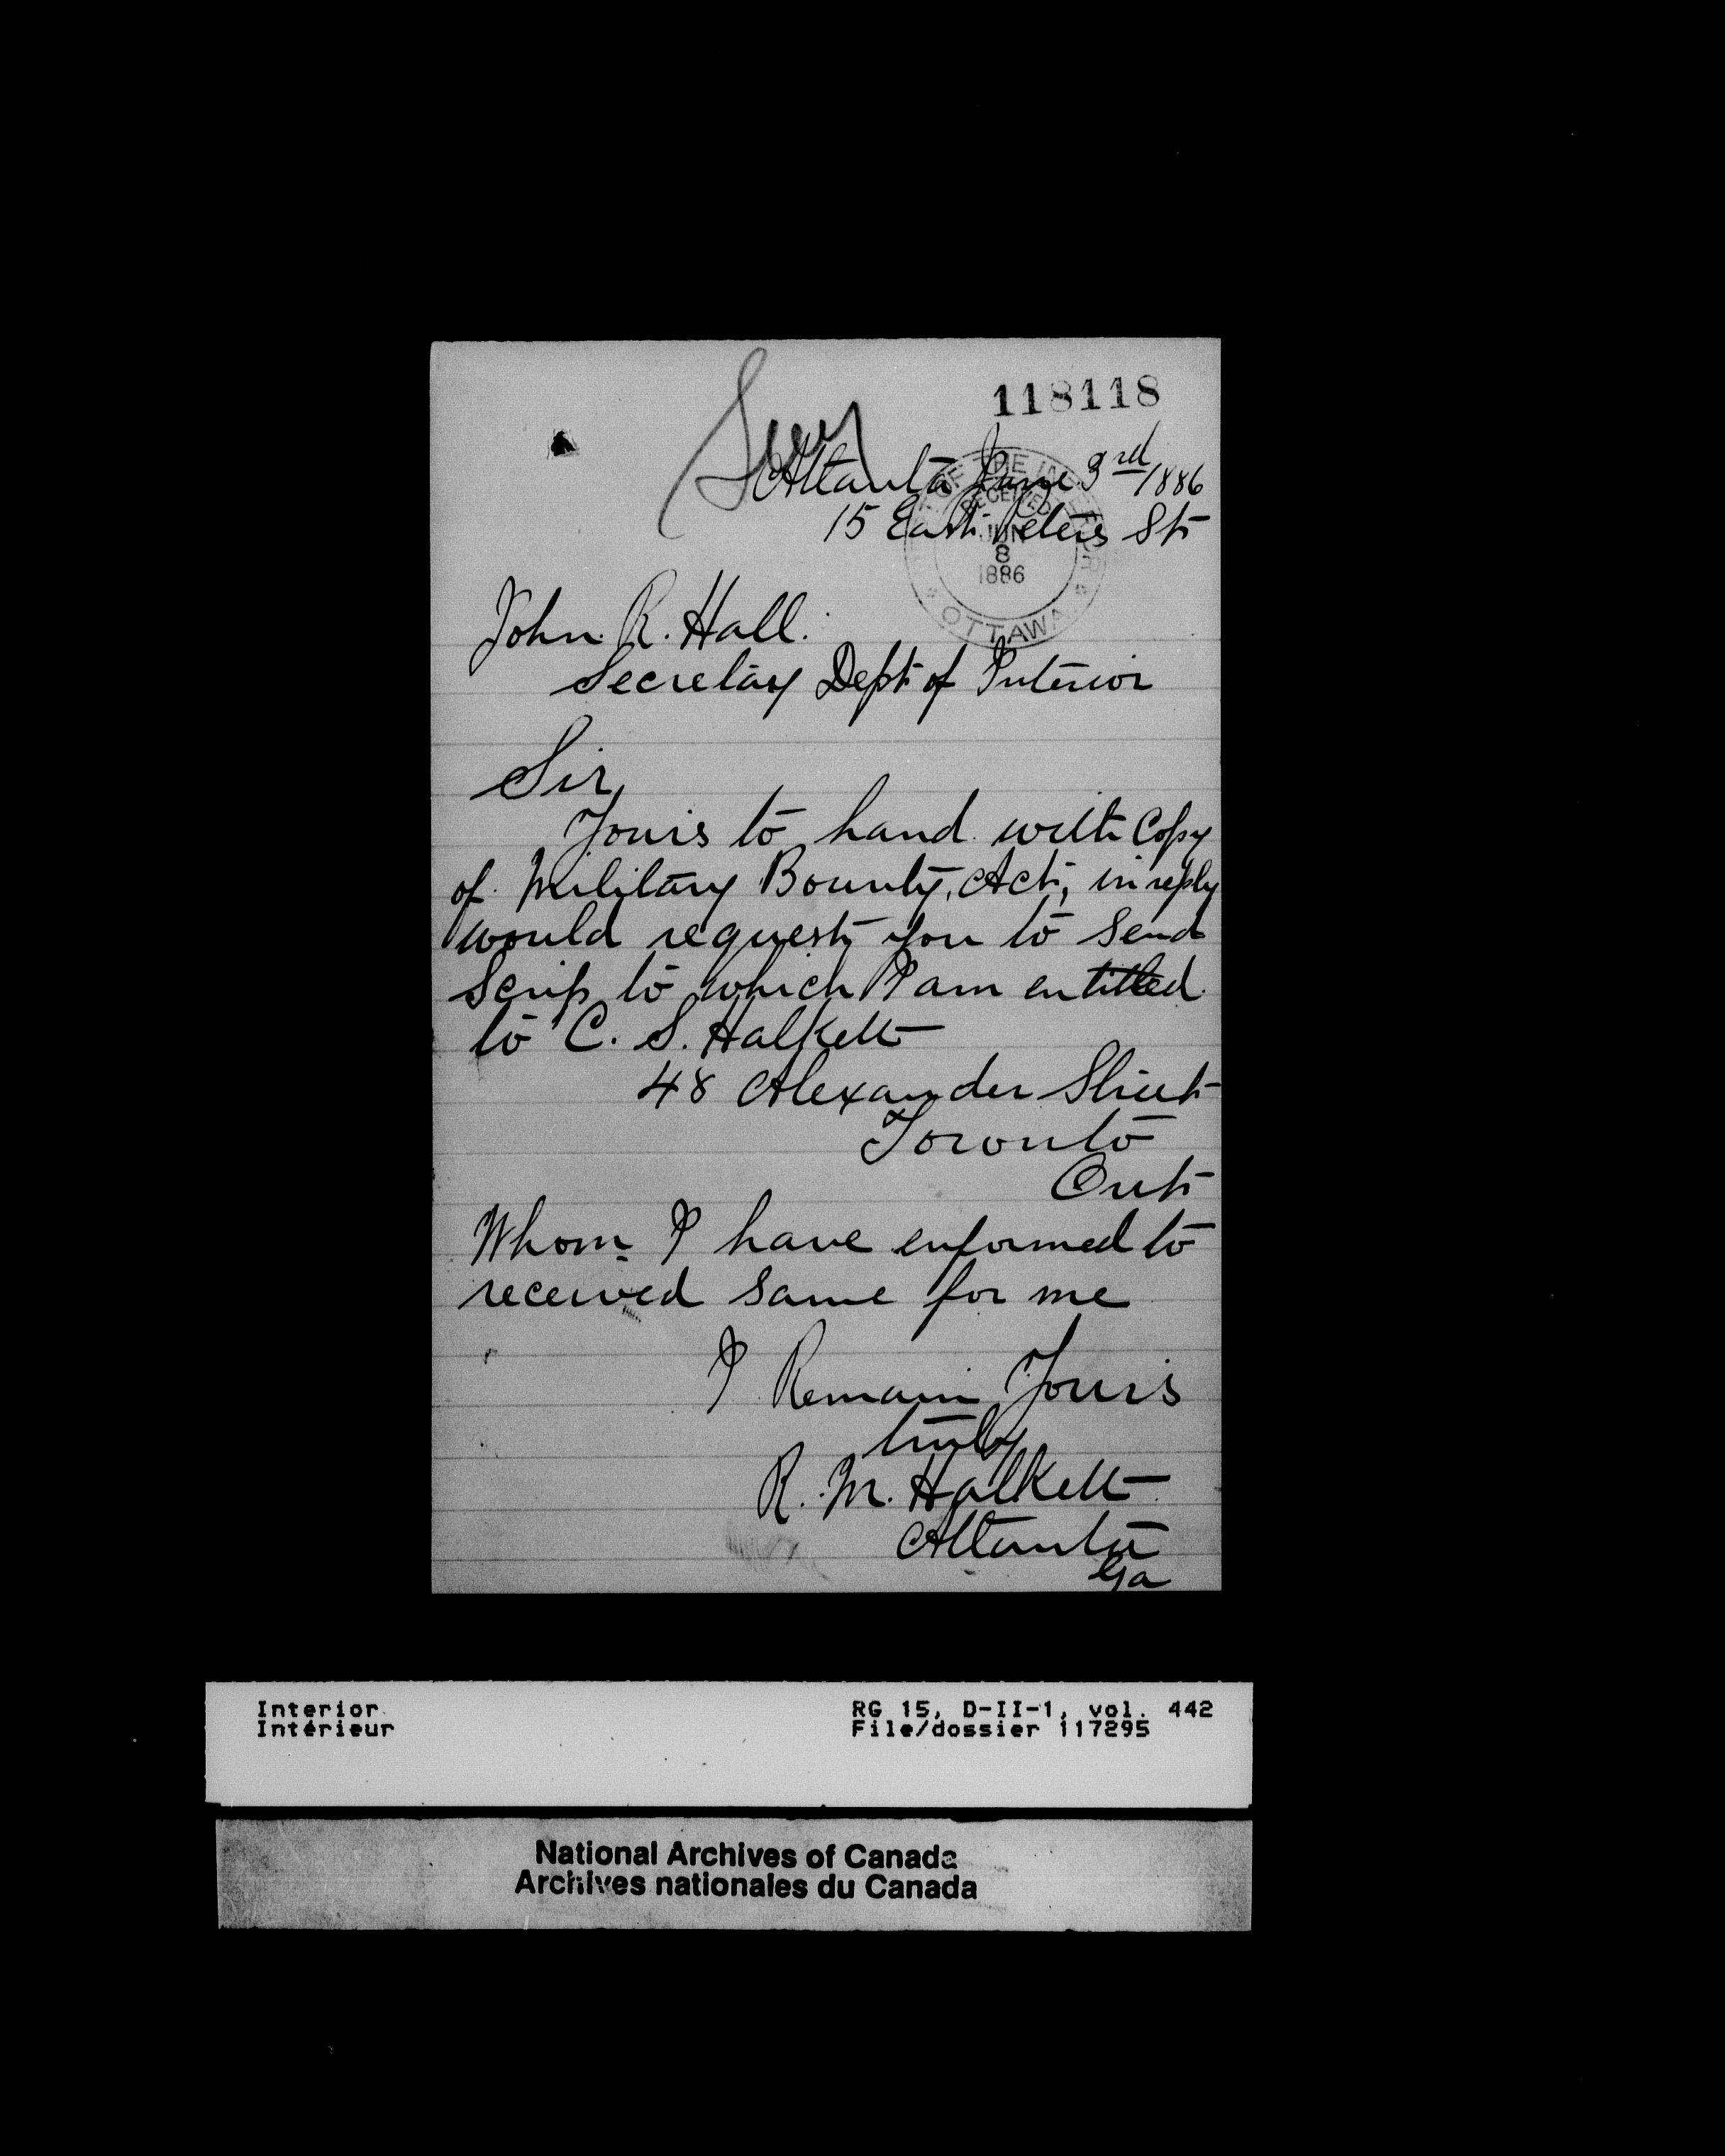 118118
Atlanta June 3rd/1886
15 East Peters St
OF THE INTERIOR
RECEIVED
JUN
8
1886
OTTAWA
John. R. Hall.
Secretary Dept of Interior
Sir,
Yours to hand with Copy
of Military Bounty Act, in reply
would request you to send
Scrip to which I am entitled
to C. S. Halkett
48 Alexander Street
Toronto
Ont
Whom I have enformed to
received same for me
I Remain Yours
truly
R. M. Halkett
Atlanta
Ga
Interior
Intérieur
RG 15, D-II-1, vol. 442
File/dossier 117295
National Archives of Canada
Archives nationales du Canada